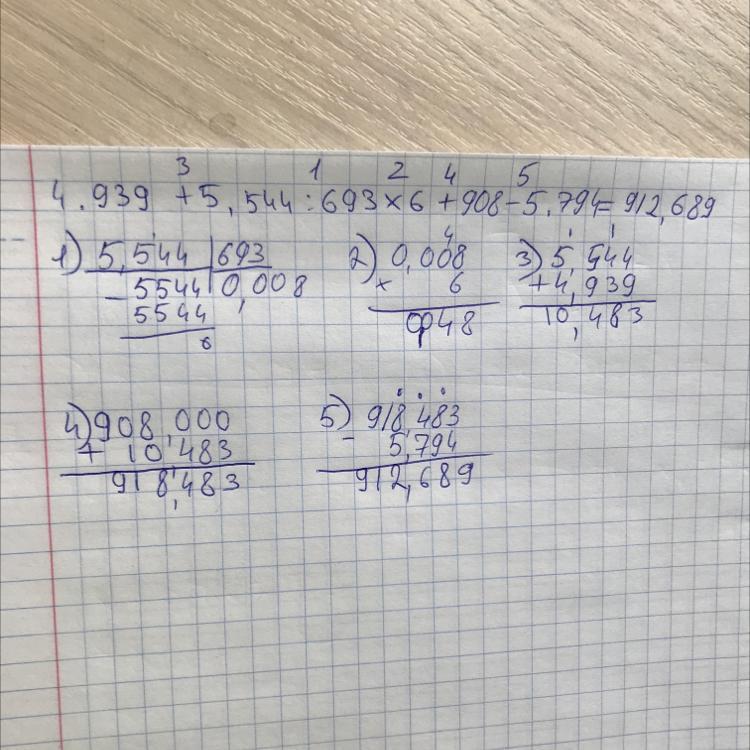 3 1 2 4 5
4.939 + 5,544 : 693 × 6 + 908 - 5.794 = 912,689
1) 5,544 | 693 2) 0,008 3) 5,544
- 5544 0,008 × 6 + 4,939
5544 0,048 10,483
0
4) 908,000 5) 918,483
+ 10,483 - 5,794
918,483 912,689